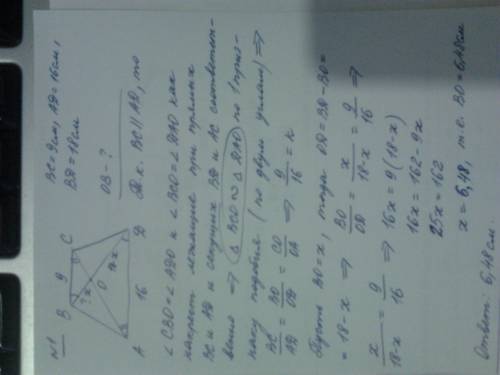 №1
B 9 C
O
A 16 D
BC = 9 см, AD = 16 см,
BD = 18 см
OB - ?
Т.к. BC || AD, то
∠CBD = ∠ADO и ∠BCO = ∠DAO как
накрест лежащие при прямых
BC и AD и секущих BD и AC соответст-
венно ⇒ △BCO ∾ △DAO по 1 приз-
наку подобия (по двум углам) ⇒
BC/AD = BO/OD = CO/OA ⇒ 9/16 = k
Пусть BO = x, тогда OD = BD - BO =
= 18 - x ⇒ BO/OD = x/(18-x) = 9/16 ⇒
x/(18-x) = 9/16 ⇒ 16x = 9(18-x)
16x = 162 - 9x
25x = 162
x = 6,48, т.е. BO = 6,48 см
Ответ: 6,48 см.